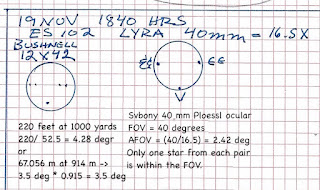 19 NOV 1840 HRS
ES 102 LYRA 40mm = 16.5X
BUSHNELL
12X42
V
220 feet at 1000 yards
220/ 52.5 = 4.28 degr
or
67.056 m at 914 m ->
3.5 deg * 0.915 = 3.5 deg
Svbony 40 mm Ploessl ocular
FOV = 40 degrees
AFOV = (40/16.5) = 2.42 deg
Only one star from each pair
is within the FOV.